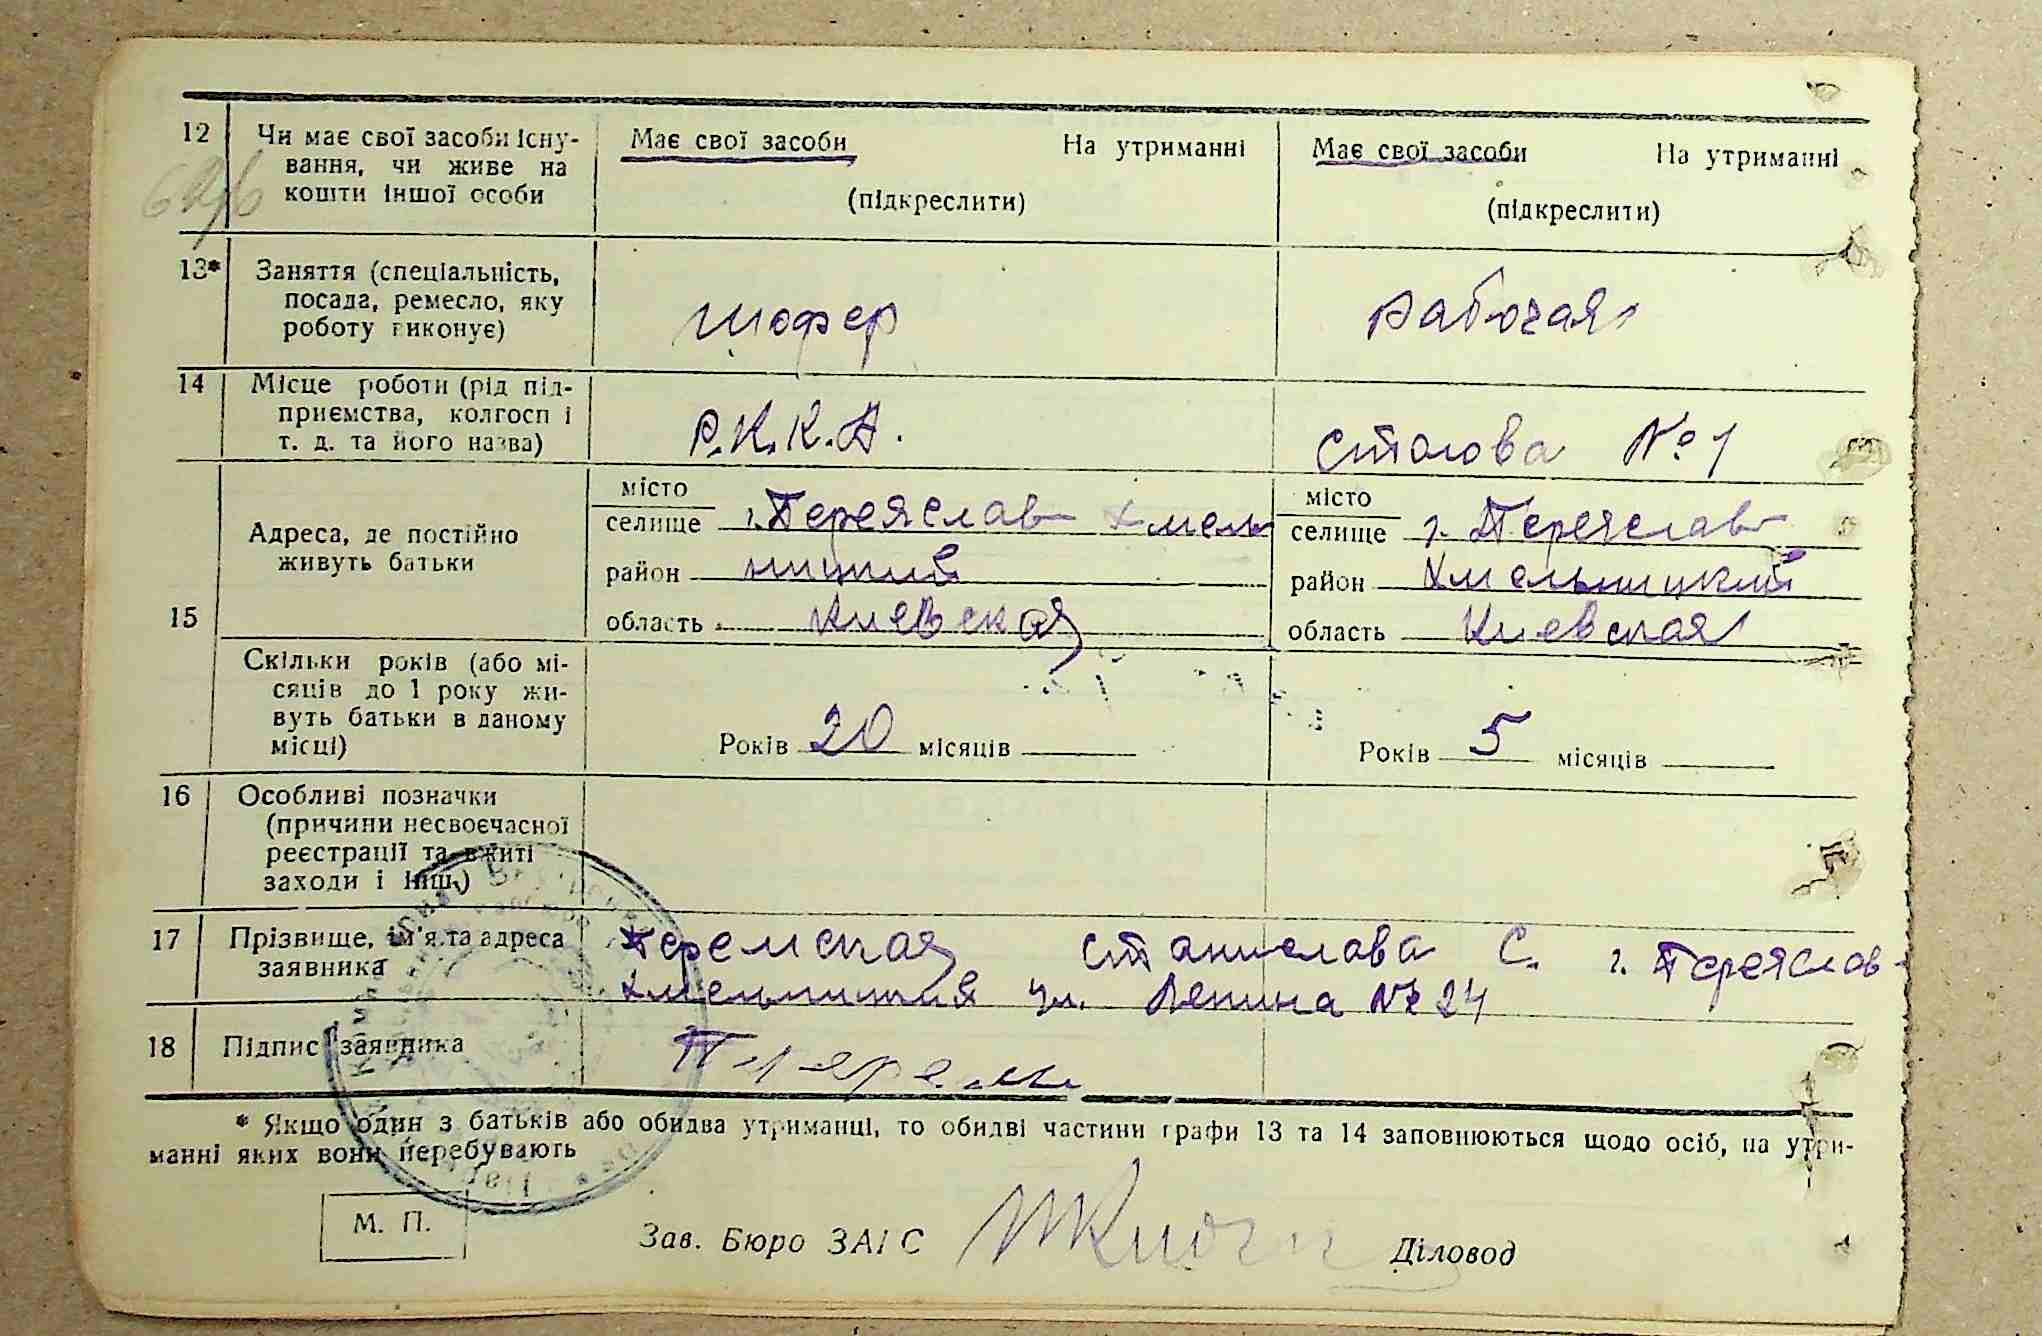 12 Чи має свої засоби існу-
вання, чи живе на
кошти іншої особи
Має свої засоби На утриманні
(підкреслити)
Має свої засоби На утриманні
(підкреслити)
13* Заняття (спеціальність,
посада, ремесло, яку
роботу виконує)
шофер
рабочая
14 Місце роботи (рід під-
приємства, колгосп і
т. д. та його назва)
Р.К.К.А.
столова № 1
15
Адреса, де постійно
живуть батьки
місто
селище г. Переяслав Хмель
район ницкий
область Киевская
місто
селище г. Переяслав
район Хмельницкий
область Киевская
Скільки років (або мі-
сяців до 1 року жи-
вуть батьки в даному
місці)
Років 20 місяців
Років 5 місяців
16 Особливі позначки
(причини несвоєчасної
реєстрації та вжиті
заходи і інш.)
17 Прізвище, ім'я та адреса
заявника
Перемская Станислава С. г. Переяслав-
Хмельницкий ул. Ленина № 24
18 Підпис заявника
* Якщо один з батьків або обидва утриманці, то обидві частини графи 13 та 14 заповнюються щодо осіб, на утри-
манні яких вони перебувають
М. П.
Зав. Бюро ЗАГС Діловод